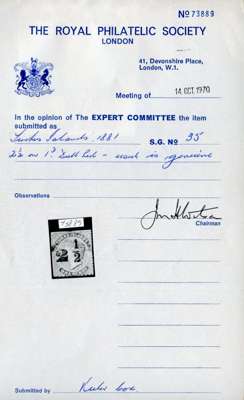 No 73889
THE ROYAL PHILATELIC SOCIETY
LONDON
41, Devonshire Place,
London, W.1.
Meeting of 14 OCT. 1970
In the opinion of The EXPERT COMMITTEE the item
submitted as
Turks Islands 1881 S.G. No 35
2½ on 1d Dull Red - used is genuine
Observations
Chairman
1
2 2
Submitted by